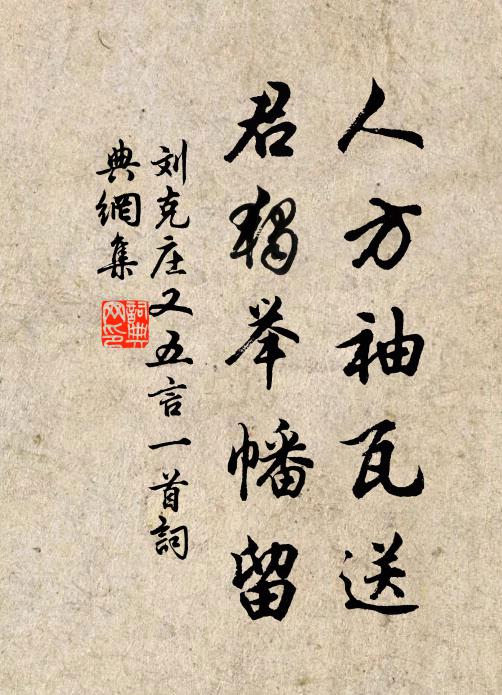 人方袖瓦送
君獨举幡留
刘克庄又五言一首詞
典網集
詞典网印